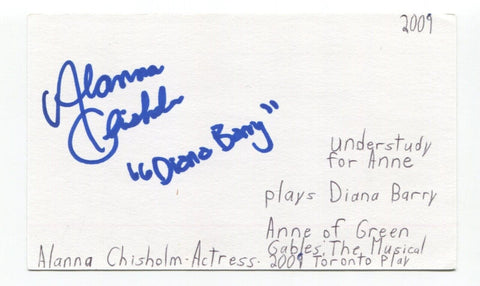 2009
Alanna
Chisholm
"Diana Barry"
understudy
for Anne
plays Diana Barry
Anne of Green
Gables: The Musical
2009 Toronto Play
Alanna Chisholm-Actress.